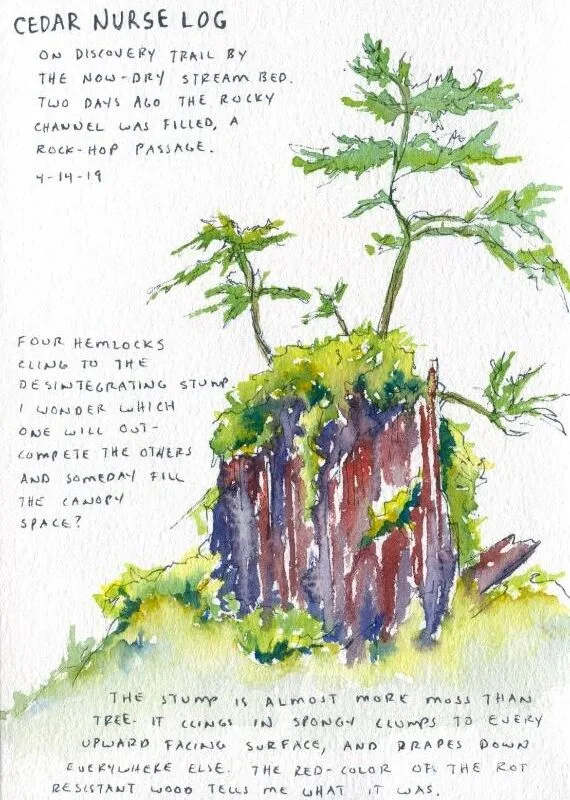 CEDAR NURSE LOG
ON DISCOVERY TRAIL BY
THE NOW-DRY STREAM BED.
TWO DAYS AGO THE ROCKY
CHANNEL WAS FILLED, A
ROCK-HOP PASSAGE.
4-14-19
FOUR HEMLOCKS
CLING TO THE
DESINTEGRATING STUMP.
I WONDER WHICH
ONE WILL OUT-
COMPETE THE OTHERS
AND SOMEDAY FILL
THE CANOPY
SPACE?
THE STUMP IS ALMOST MORE MOSS THAN
TREE. IT CLINGS IN SPONGY CLUMPS TO EVERY
UPWARD FACING SURFACE, AND DRAPES DOWN
EVERYWHERE ELSE. THE RED-COLOR OF THE ROT
RESISTANT WOOD TELLS ME WHAT IT WAS.